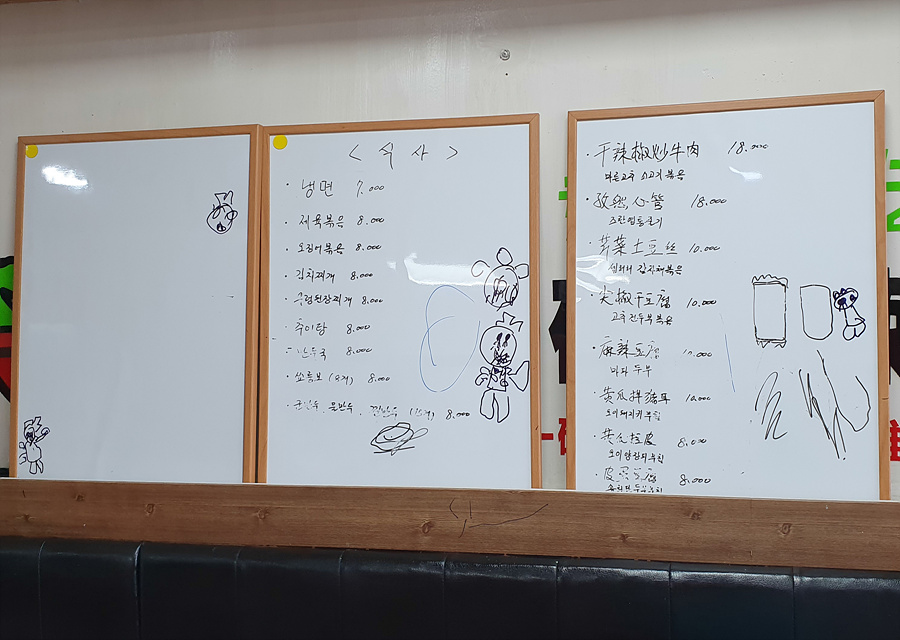 < 식 사 >
· 냉면 7.000
· 제육볶음 8.000
· 오징어볶음 8.000
· 김치찌개 8.000
된장찌개 8.000
· 추어탕 8.000
만두국 8.000
8.000
군만두, 물만두, 찐만두 8.000
· 干辣椒炒牛肉 18.000
마른고추 소고기볶음
· 孜然心管 18.000
· 芹菜土豆丝 10.000
감자채볶음
· 尖椒干豆腐 10.000
고추건두부볶음
· 麻辣豆腐 10.000
마라두부
· 黄瓜拌猪耳 10.000
오이돼지귀무침
· 黄瓜拉皮 8.000
오이양장피무침
· 皮蛋豆腐 8.000